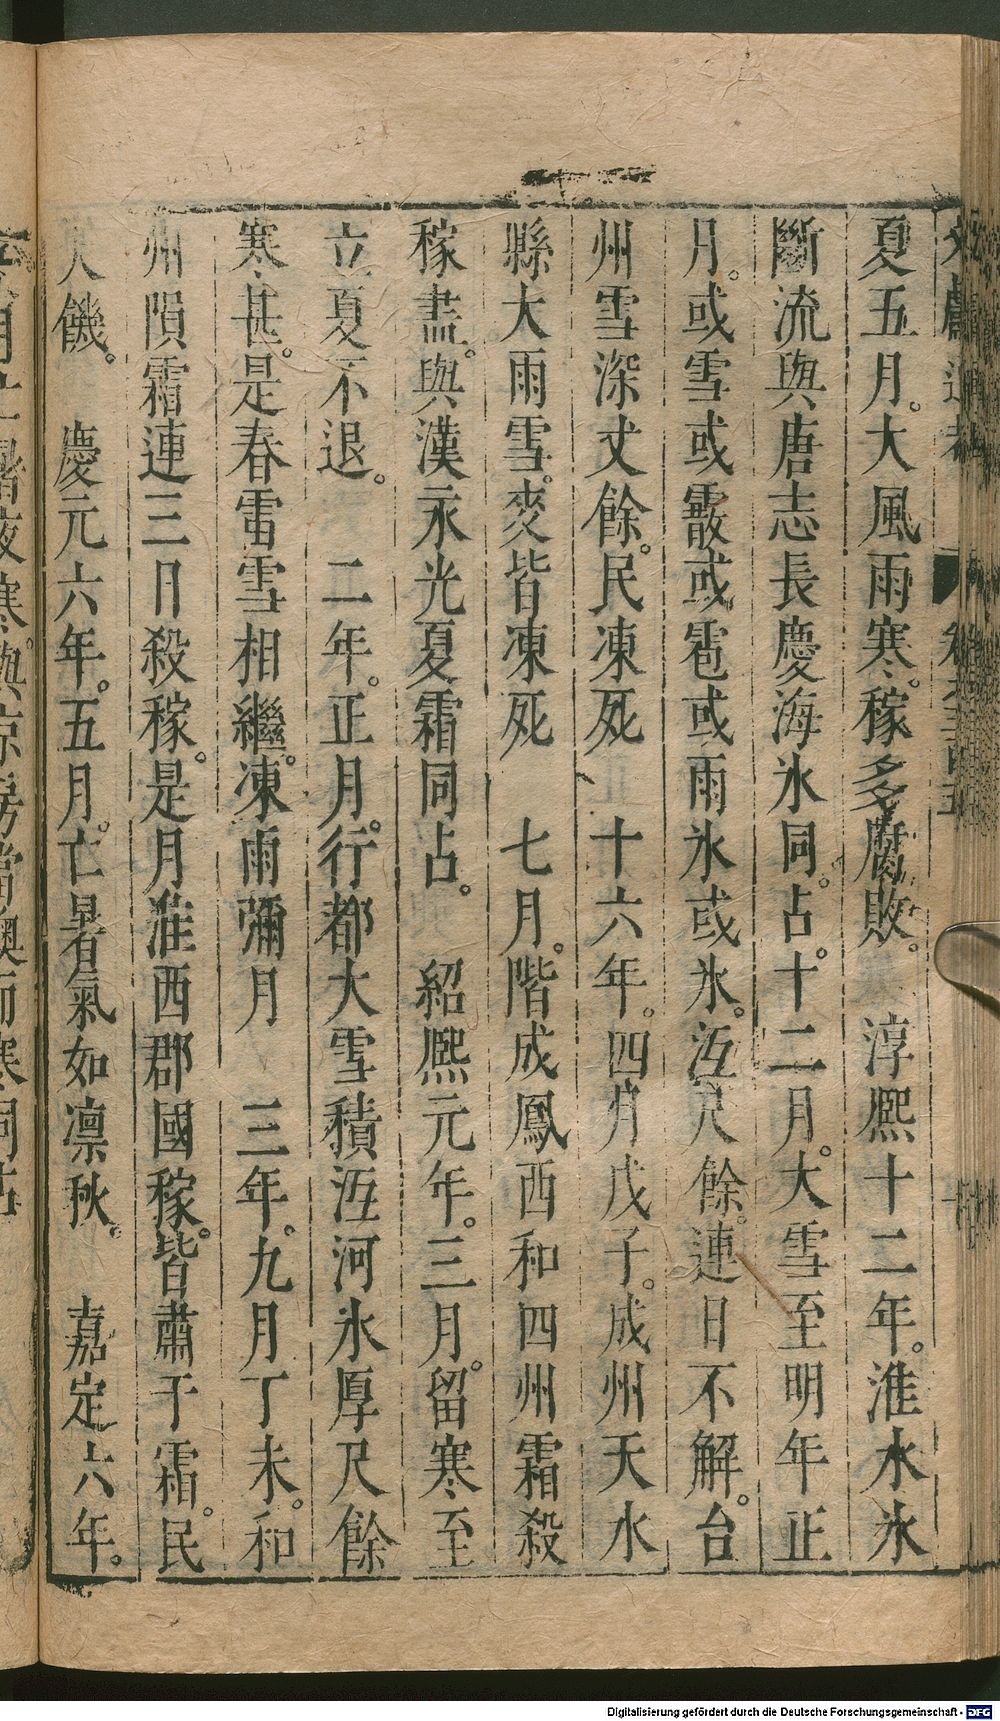 夏五月。大風雨寒。稼多腐敗。　淳熙十二年。淮水氷
斷流與唐志長慶海氷同占。十二月。大雪至明年正
月。或雪或霰或雹或雨氷或氷。沍尺餘。連日不解。台
州雪深丈餘。民凍死　十六年。四月戊子。成州天水
縣大雨雪。麥皆凍死　七月。階成鳳西和四州霜殺
稼盡。與漢永光夏霜同占。　紹熙元年。三月。留寒至
立夏不退。　二年。正月。行都大雪積沍河氷厚尺餘
寒甚。是春雷雪相繼。凍雨彌月　三年。九月丁未。和
州隕霜連三日殺稼。是月淮西郡國稼。皆肅于霜。民
大饑。　慶元六年。五月。亡暑氣如凛秋。　嘉定六年。
Digitalisierung gefördert durch die Deutsche Forschungsgemeinschaft - DFG